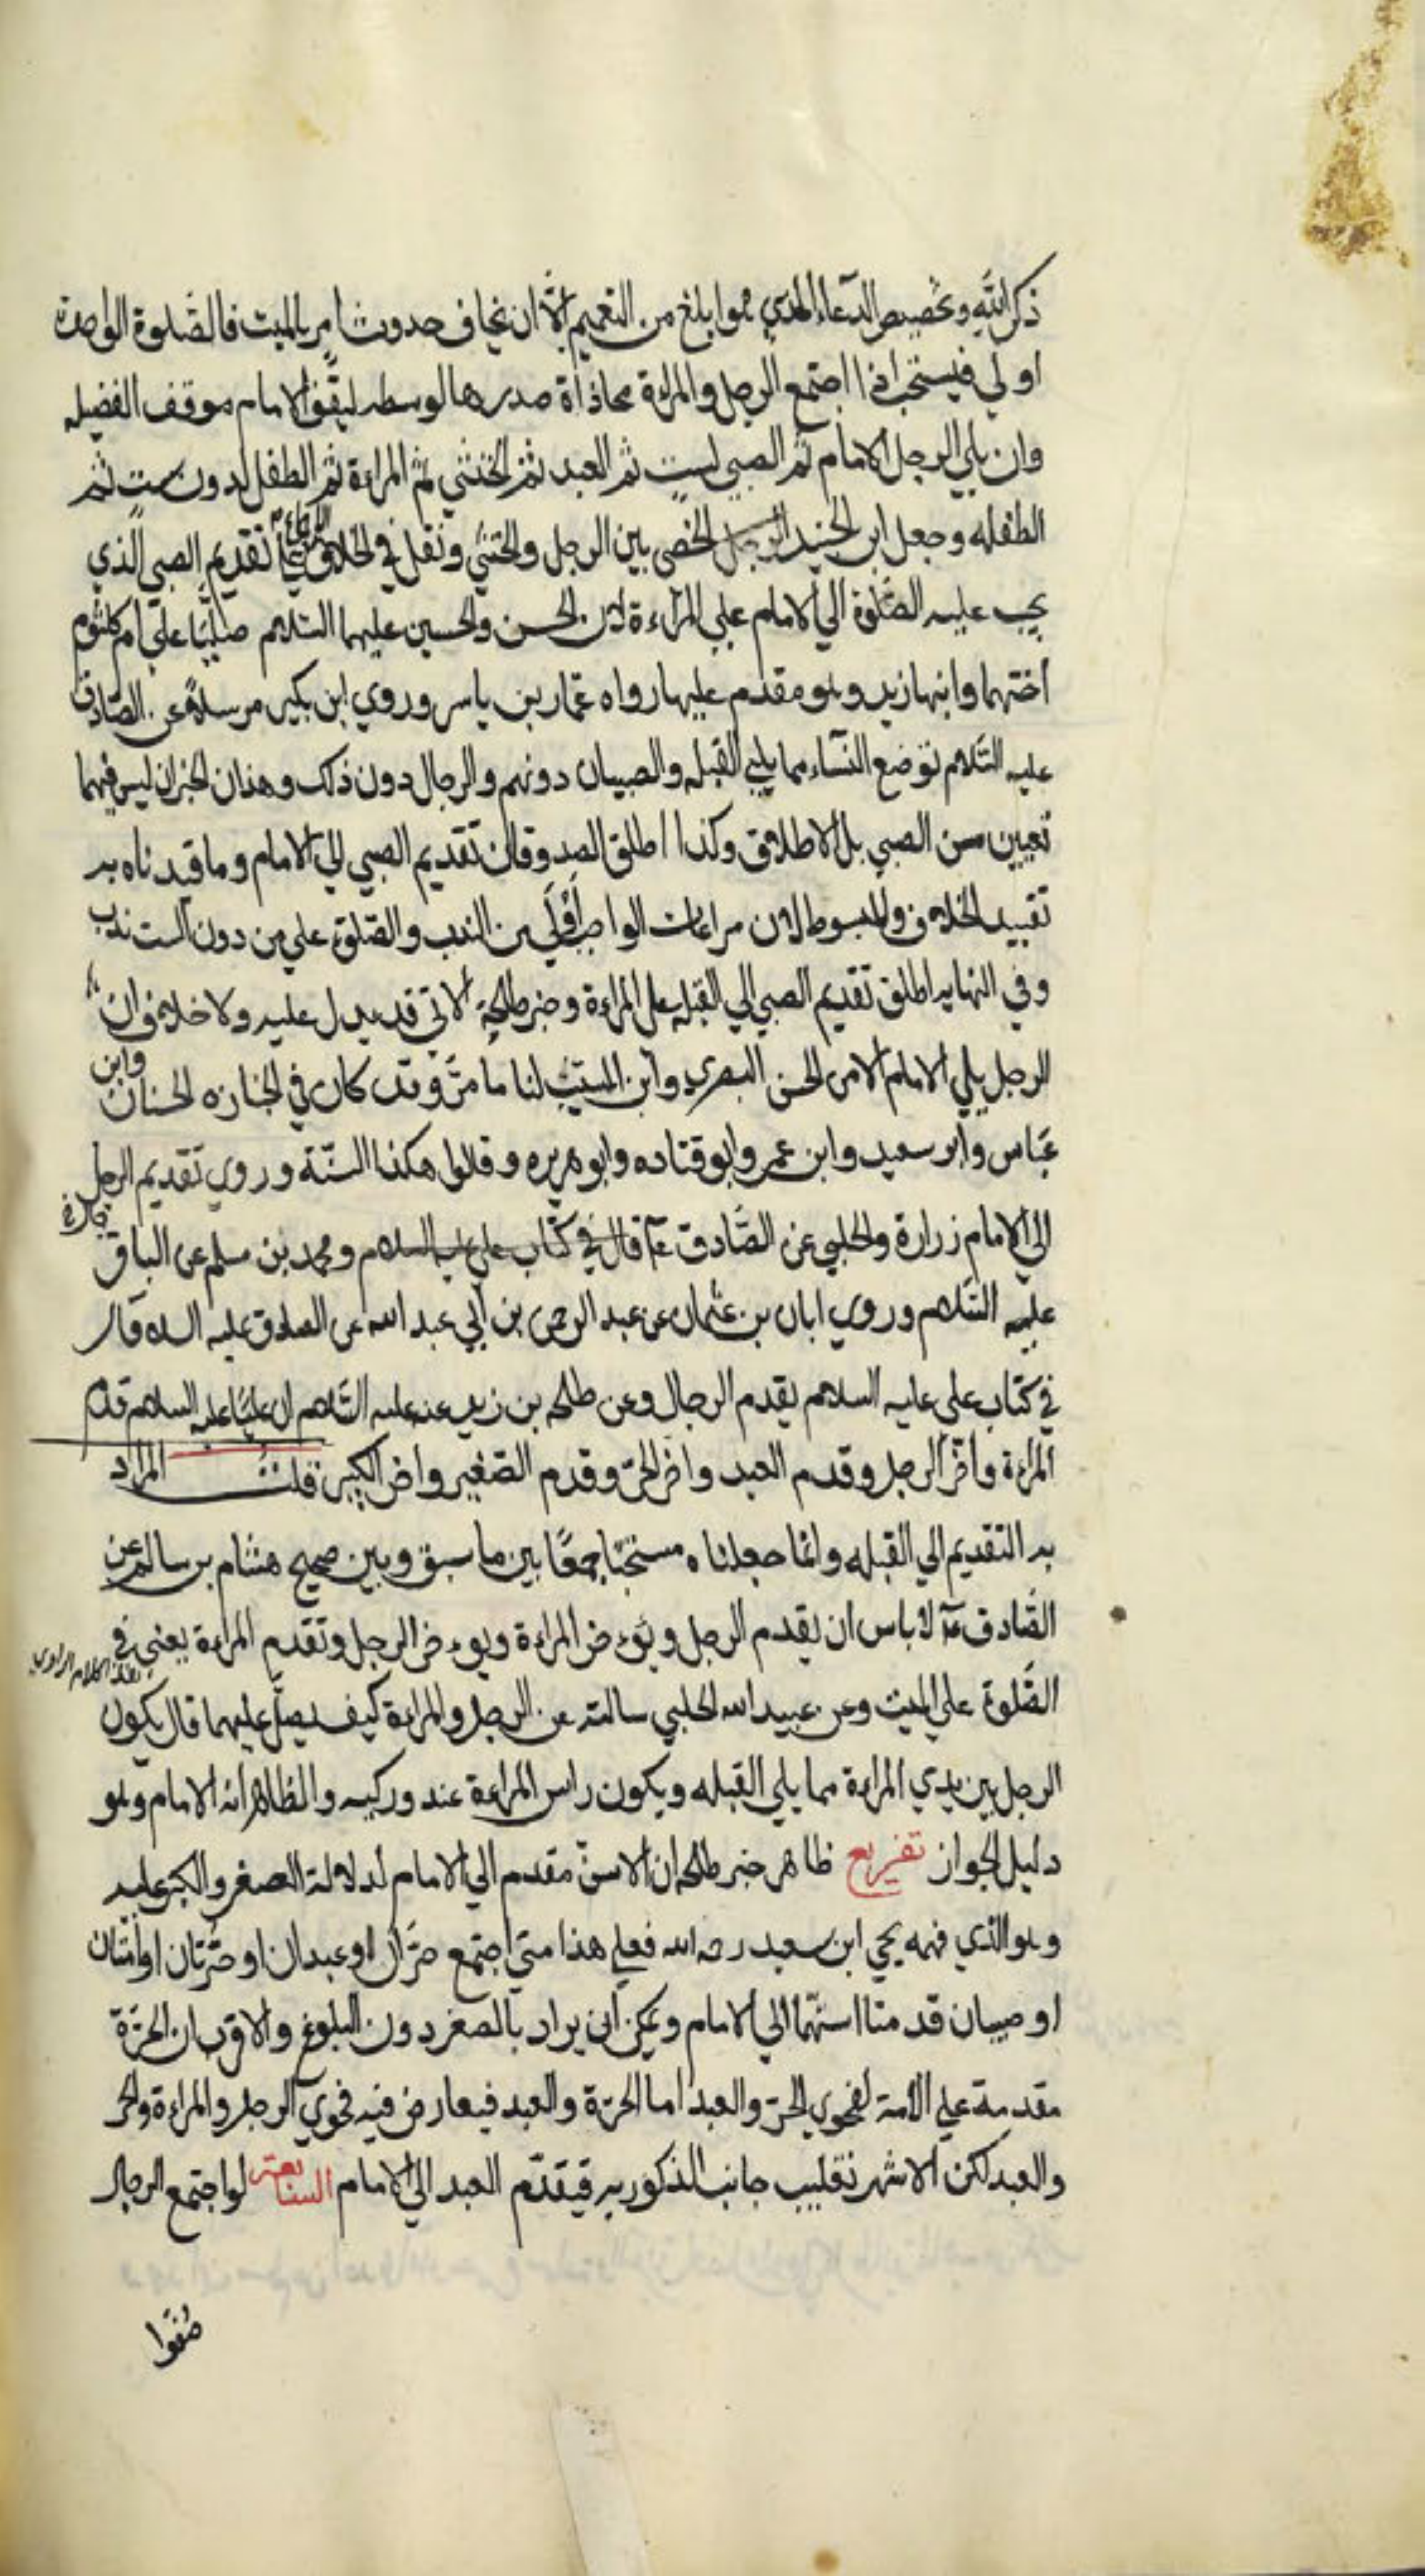 ذكر الله وتخصيص الدعاء الذي هو ابلغ من التعميم الا ان يخاف حدوث امر بالميت فالصلوة الواحدة
اولي فيستحب اذا اجتمع الرجل والمراة محاذاة صدرها لوسطه ليقف الامام موقف الفضيله
وان يلي الرجل الامام ثم الصبي لست ثم العبد ثم الخنثي ثم المراءة ثم الطفل لدون ست ثم
الطفله وجعل ابن الجنيد الرجل الخصي بين الرجل والخنثي ونقل في الخلاف الاجماع علي تقديم الصبي الذي
يجب عليه الصلوة الي الامام علي المراءة لان الحسن والحسين عليهما السلام صليا علي ام كلثوم
اختهما وابنها زيد وهو مقدم عليها رواه عمار بن ياسر وروي ابن بكير مرسلا عن الصادق
عليه السلام توضع النساء مما يلي القبله والصبيان دونهم والرجال دون ذلك وهذان الخبران ليس فيهما
تعيين سن الصبي بل الاطلاق وكذا اطلق الصدوقان تقديم الصبي الي الامام وما قيدناه به
تقييد الخلاف والمبسوط لان مراعات الواجب اولي من الندب والصلوة علي من دون الست ندب
وفي النهايه اطلق تقديم الصبي الي القبله علي المراءة وخبر طلحة الاتي قد يدل عليه ولا خلاف ان
الرجل يلي الامام الا من الحسن البصري وابن المسيب لنا ما مر وقد كان في الجنازه الحسنان وابن
عباس وابو سعيد وابن عمر وابو قتاده وابو هريره وقالوا هكذا السنة وروي تقديم الرجل
الي الامام زرارة والحلبي عن الصادق عم قال في كتاب علي عليه السلام ومحمد بن مسلم عن الباقر
عليه السلام وروي ابان بن عثمان عن عبد الرحمن بن ابي عبد الله عن الصادق عليه السلام قال
في كتاب علي عليه السلام يقدم الرجال وعن طلحه بن زيد عنه عليه السلام ان عليا عليه السلام قدم
المراءة واخر الرجل وقدم العبد واخر الحر وقدم الصغير واخر الكبير قلت المراد
به التقديم الي القبله وانما جعلناه مستحبا جمعا بين ما سبق وبين صحيح هشام بن سالم عن
الصادق عم لا باس ان يقدم الرجل ويؤخر المراءة ويوءخر الرجل وتقدم المراءة يعني في
هذا كلام الراوي
الصلوة علي الميت وعن عبيد الله الحلبي سالته عن الرجل والمراءة كيف يصلي عليهما قال يكون
الرجل بين يدي المراءة مما يلي القبله ويكون راس المراءة عند وركيه والظاهر انه الامام وهو
دليل الجواز تفريع ظاهر خبر طلحه ان الاسن مقدم الي الامام لدلالة الصغر والكبر عليه
وهو الذي فهمه يحيي ابن سعيد رحمه الله فعلي هذا متي اجتمع حران او عبدان او حرتان او امتان
او صبيان قدمنا اسنهما الي الامام ويمكن ان يراد بالصغر دون البلوغ والاقرب ان الحرة
مقدمة علي الامة لفحوي الحر والعبد اما الحرة والعبد فيعارض فيه فحوي الرجل والمراءة والحر
والعبد لكن الاشهر تغليب جانب الذكوريه فيقدم العبد الي الامام السابعة لو اجتمع الرجال
صفوا